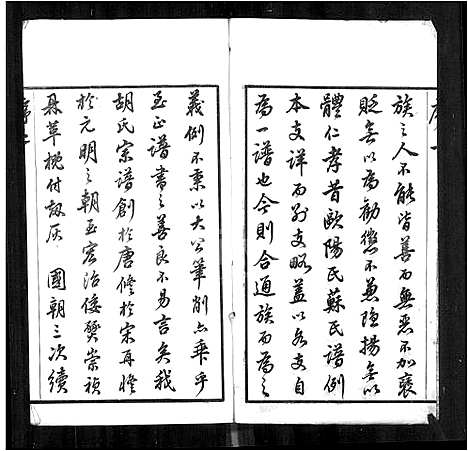 族之人不能皆善而無惡不加褒
貶無以為勸懲不兼隱揚無以
體仁孝昔歐陽氏蘇氏譜例
本支詳而別支略蓋以各支自
為一譜也今則合通族而為之
義例不秉以大公筆削亦乖乎
至正譜書之善良不易言矣我
胡氏宗譜創於唐修於宋再修
於元明之朝至宏治倭燹崇禎
兵草概付劫灰 國朝三次續